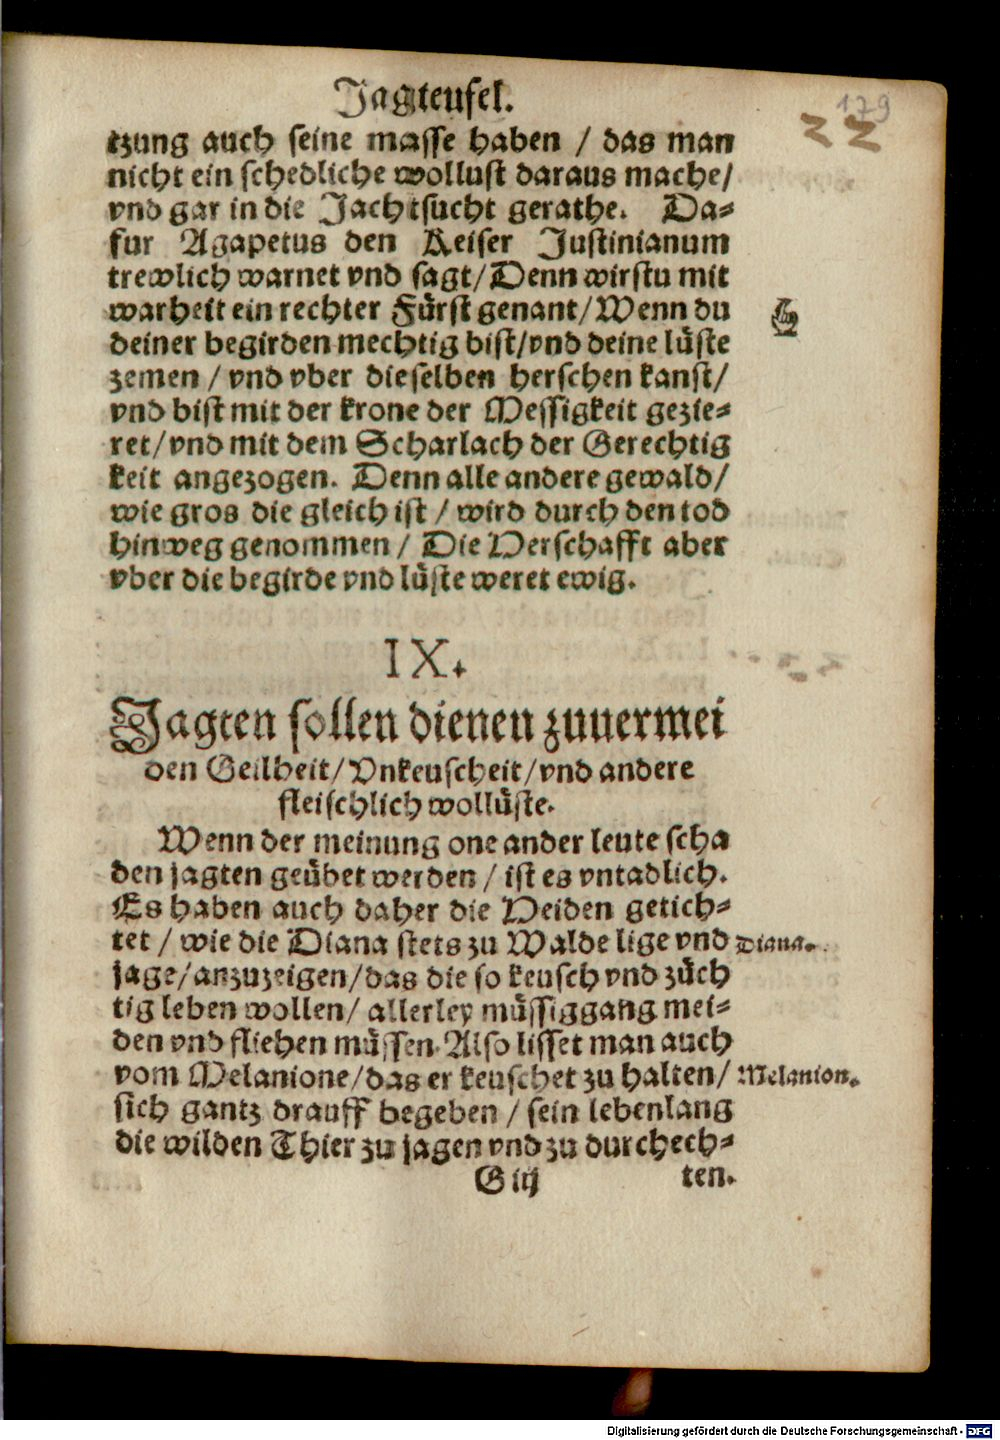 Jagteufel.
179
22
tzung auch seine masse haben / das man
nicht ein schedliche wollust daraus mache/
vnd gar in die Jachtsucht gerathe. Da=
fur Agapetus den Keiser Justinianum
trewlich warnet vnd sagt/ Denn wirstu mit
warheit ein rechter Fürst genant/ Wenn du
deiner begirden mechtig bist/vnd deine lüste
zemen / vnd vber dieselben herschen kanst/
vnd bist mit der krone der Messigkeit gezie=
ret/vnd mit dem Scharlach der Gerechtig
keit angezogen. Denn alle andere gewald/
wie gros die gleich ist / wird durch den tod
hinweg genommen / Die Verschafft aber
vber die begirde vnd lüste weret ewig.
IX.
Jagten sollen dienen zuuermei
den Geilheit/ Vnkeuscheit/ vnd andere
fleischlich wollüste.
Wenn der meinung one ander leute scha
den jagten geübet werden / ist es vntadlich.
Es haben auch daher die Heiden getich=
tet / wie die Diana stets zu Walde lige vnd
Diana.
jage/anzuzeigen/das die so keusch vnd züch
tig leben wollen/ allerley müssiggang mei=
den vnd fliehen müssen. Also lisset man auch
vom Melanione/das er keuschet zu halten/
Melanion.
sich gantz drauff begeben / sein lebenlang
die wilden Thier zu jagen vnd zu durchech=
G iij
ten.
Digitalisierung gefördert durch die Deutsche Forschungsgemeinschaft - DFG